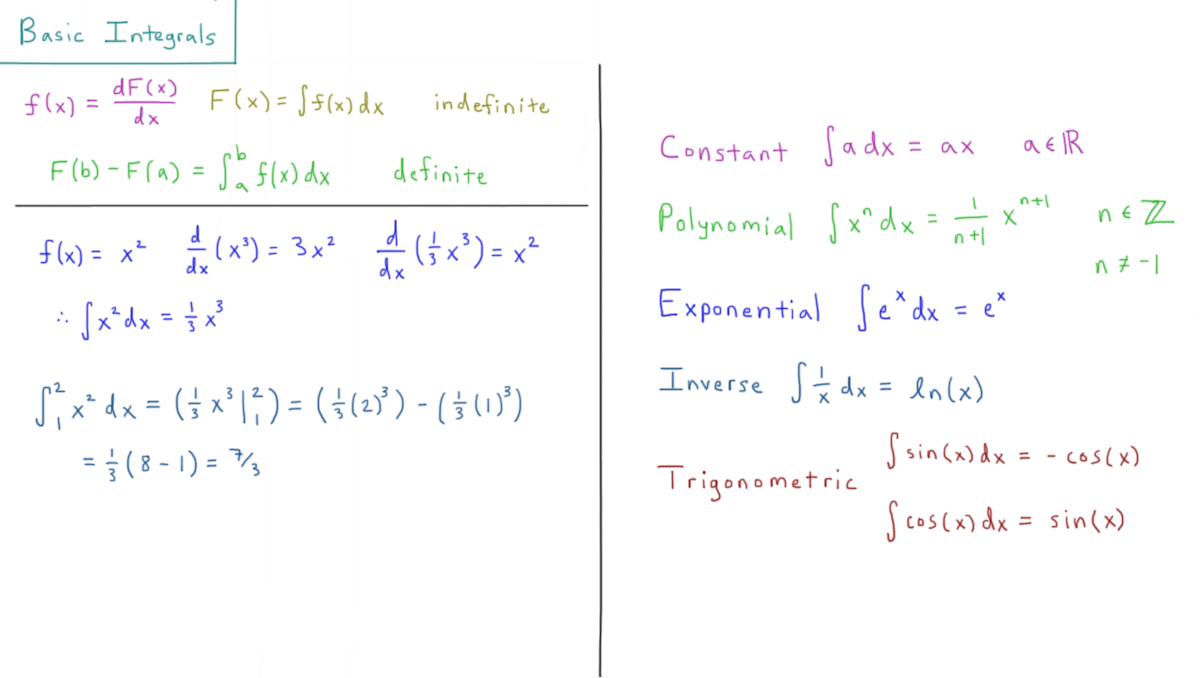 Basic Integrals
f(x) = dF(x)/dx F(x) = ∫f(x)dx indefinite
F(b) - F(a) = ∫ₐᵇ f(x)dx definite
f(x) = x² d/dx (x³) = 3x² d/dx (1/3 x³) = x²
∴ ∫x²dx = 1/3 x³
∫₁² x² dx = (1/3 x³|₁²) = (1/3(2)³) - (1/3(1)³)
= 1/3(8 - 1) = 7/3
Constant ∫a dx = ax a ∈ ℝ
Polynomial ∫xⁿdx = 1/(n+1) xⁿ⁺¹ n ∈ ℤ
n ≠ -1
Exponential ∫eˣdx = eˣ
Inverse ∫1/x dx = ln(x)
Trigonometric ∫sin(x)dx = - cos(x)
∫cos(x)dx = sin(x)